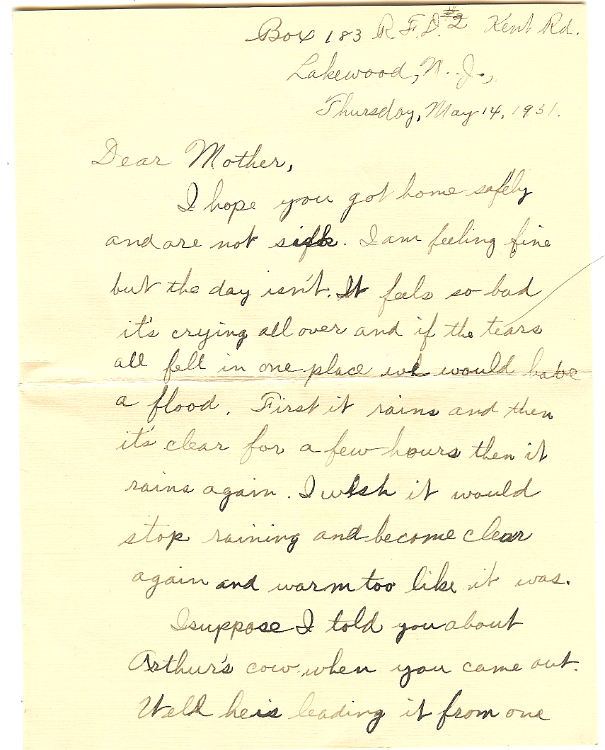 Box 183 R.F.D. #2 Kent Rd.
Lakewood, N. J.,
Thursday, May 14, 1931.
Dear Mother,
I hope you got home safely
and are not sick. I am feeling fine
but the day isn't. It feels so bad
it's crying all over and if the tears
all fell in one place we would have
a flood. First it rains and then
it's clear for a few hours then it
rains again. I wish it would
stop raining and become clear
again and warm too like it was.
I suppose I told you about
Arthur's cow when you came out.
Well he is leading it from one